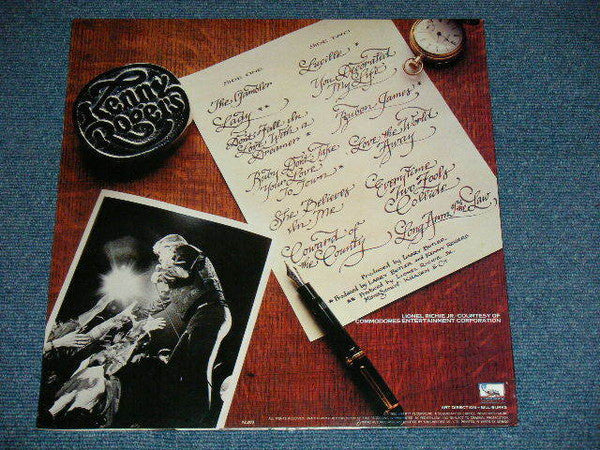 Kenny
Rogers
SIDE ONE
The Gambler
Lady **
Don't Fall In
Love With a
Dreamer *
Ruby Don't Take
Your Love
To Town
She Believes
In Me
Coward of
the County
SIDE TWO
Lucille
You Decorated
My Life
Reuben James
Love the World
Away
Everytime
Two Fools
Collide
Long Arm of the Law **
Produced by Larry Butler
* Produced by Larry Butler and Kenny Rogers
** Produced by Lionel Richie, Jr.
Management: Kragen & Co
LIONEL RICHIE JR./COURTESY OF
COMMODORES ENTERTAINMENT CORPORATION
ART DIRECTION • BILL BURKS